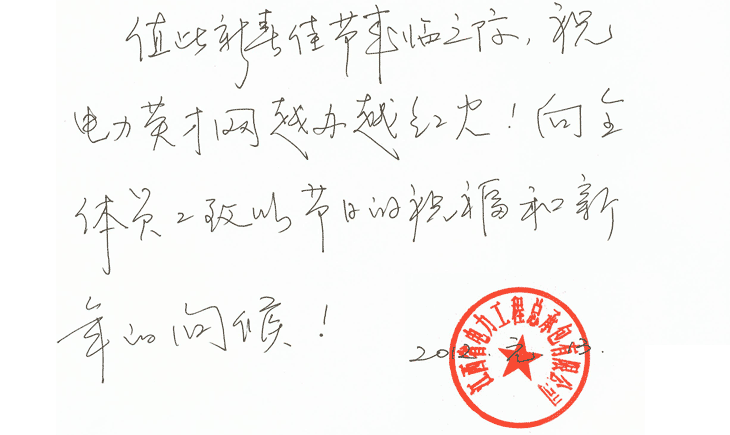 值此新春佳节来临之际，祝
电力英才网越办越红火！向全
体员工致以节日的祝福和新
年的问候！
江西省电力工程总承包有限公司
2012.元.